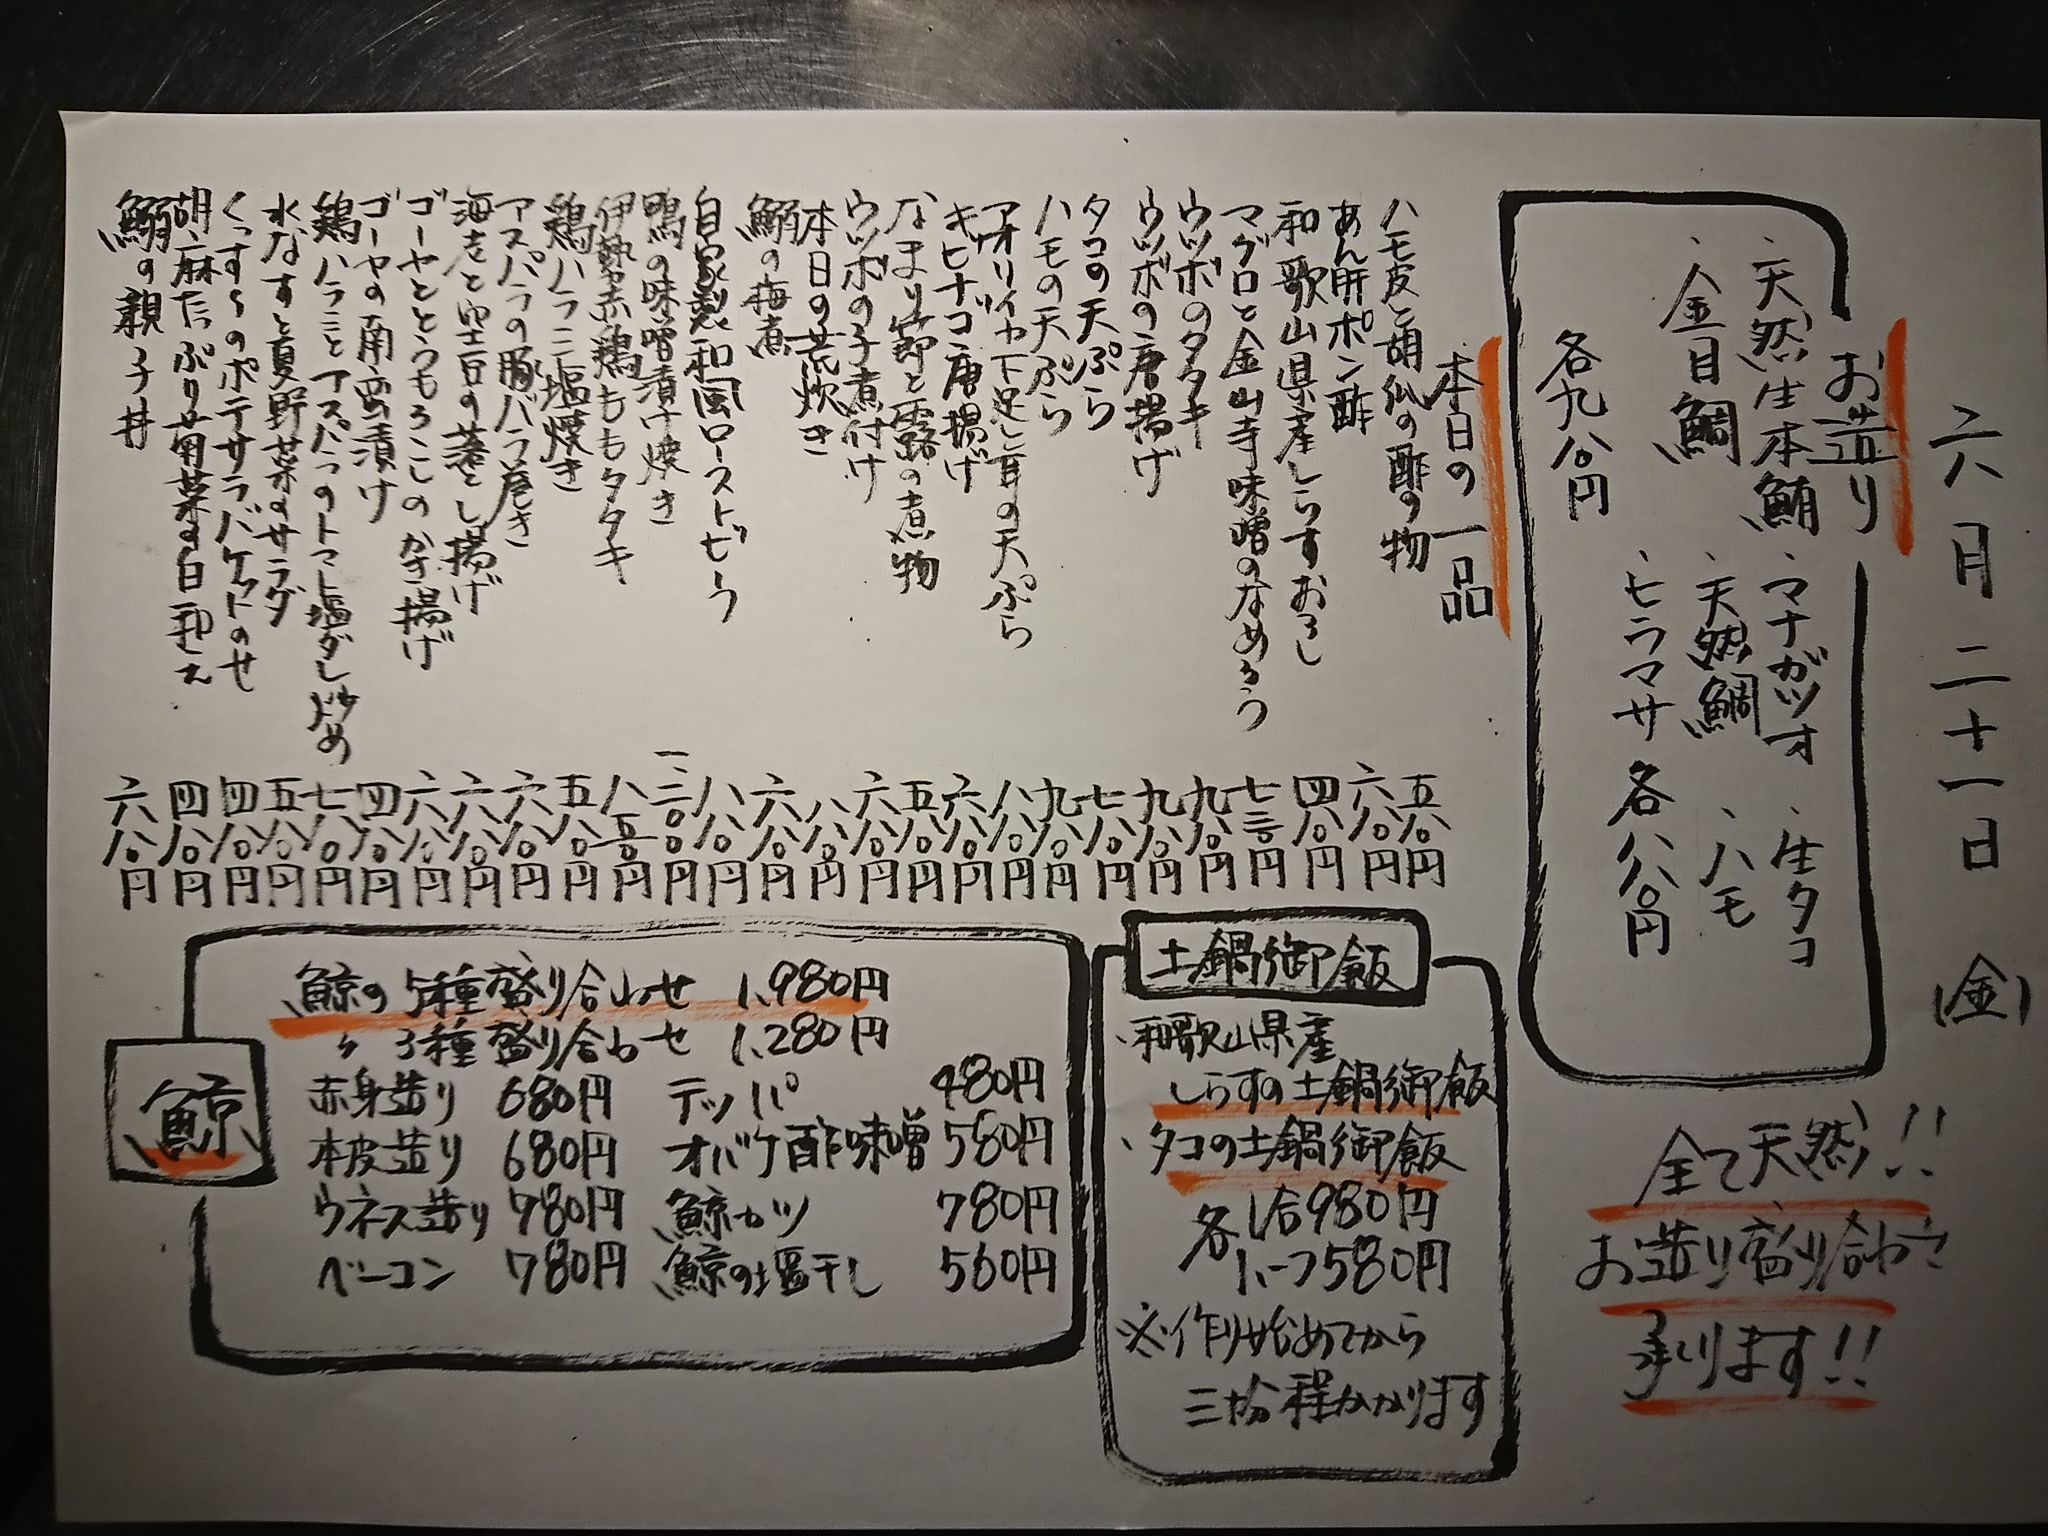 六月二十一日(金)
お造り
、天然生本鮪
、金目鯛
各九八〇円
、マナガツオ
、天然鯛
、ヒラマサ
、生タコ
、ハモ
各八八〇円
全て天然!!
お造り盛り合わせ
承ります!!
本日の一品
ハモ皮と胡瓜の酢の物 五八〇円
あん肝ポン酢 六八〇円
和歌山県産しらすおろし 四八〇円
マグロと金山寺味噌のなめろう 七三〇円
ウツボのタタキ 九八〇円
ウツボの唐揚げ 九八〇円
タコの天ぷら 七八〇円
ハモの天ぷら 九八〇円
アオリイカ下足と耳の天ぷら 八八〇円
キビナゴ唐揚げ 六八〇円
なまり節と露の煮物 五八〇円
ウツボの子煮付け 六八〇円
本日の荒炊き 八八〇円
鰯の梅煮 六八〇円
自家製和風ローストビーフ 八八〇円
鴨の味噌漬け焼き 一三〇〇円
伊勢赤鶏ももタタキ 八五〇円
鶏ハラミ塩焼き 五八〇円
アスパラの豚バラ巻き 六八〇円
海老と空豆の落とし揚げ 六八〇円
ゴーヤととうもろこしのかき揚げ 六八〇円
ゴーヤの南蛮漬け 四八〇円
鶏ハラミとアスパラのトマト塩ダレ炒め 七八〇円
水なすと夏野菜のサラダ 五八〇円
のポテサラバケットのせ 四八〇円
胡麻たっぷり菊菜の白和え 四八〇円
鰯の親子丼 六八〇円
土鍋御飯
、和歌山県産
しらすの土鍋御飯
、タコの土鍋御飯
各1合980円
1.5つ580円
※作り始めてから
三十分程かかります
鯨
鯨の5種盛り合わせ 1,980円
〃 3種盛り合わせ 1,280円
赤身造り 680円
本皮造り 680円
ウネス造り 980円
ベーコン 780円
テッパ 480円
オバケ酢味噌 580円
鯨カツ 780円
鯨の塩干し 560円